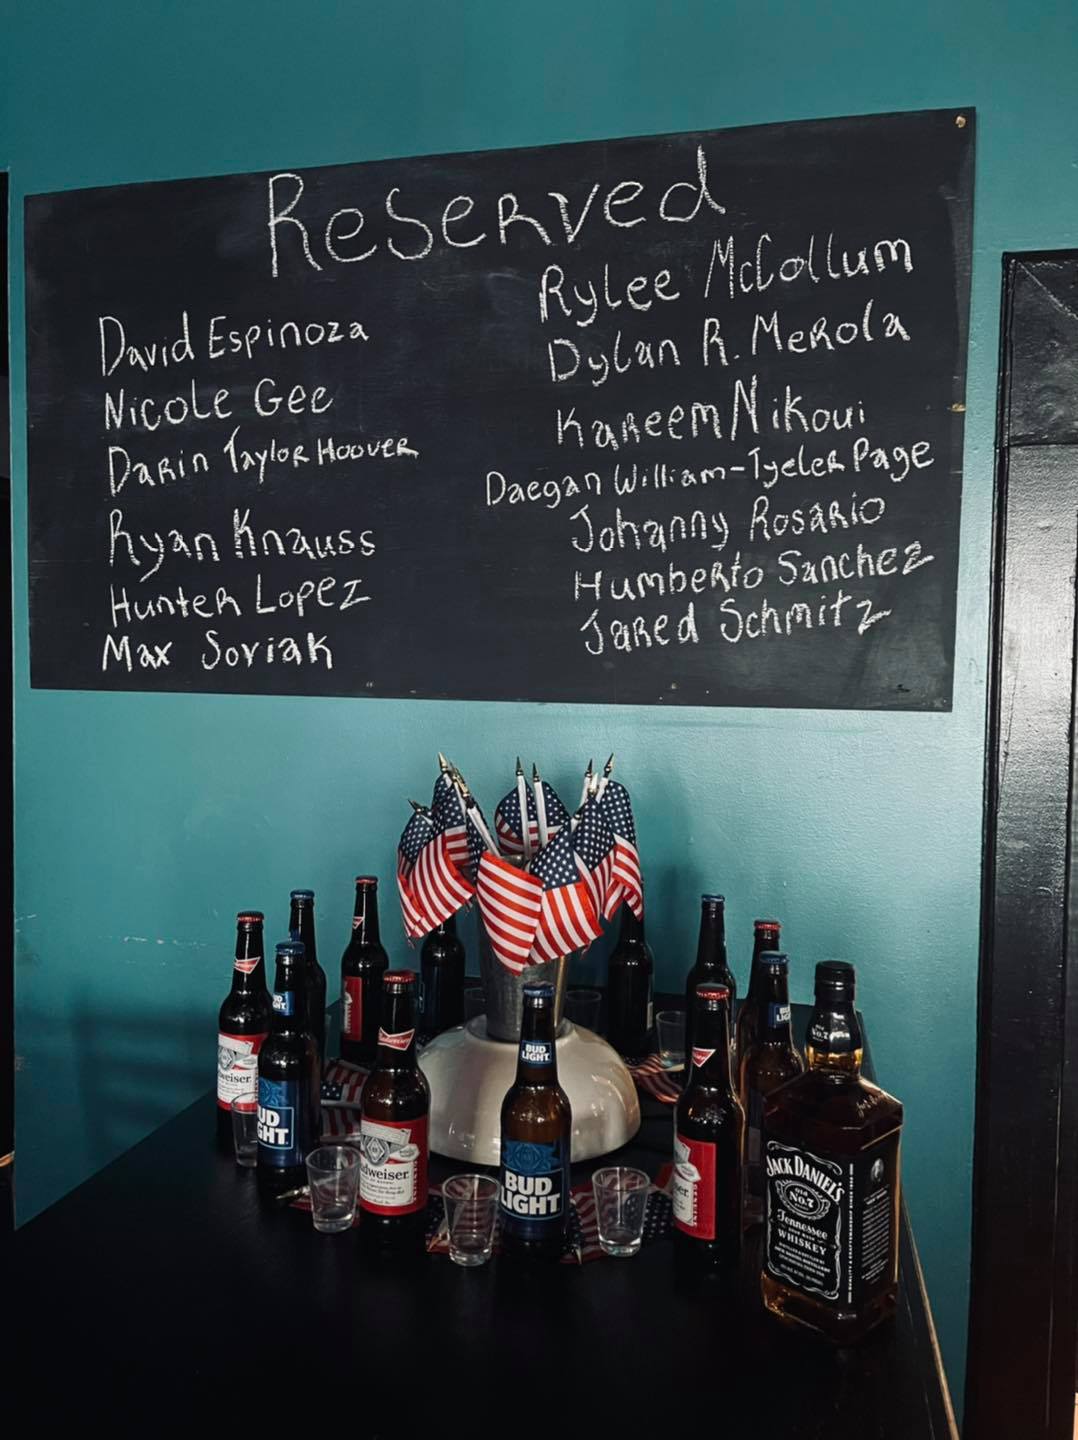 Reserved
David Espinoza
Nicole Gee
Darin Taylor Hoover
Ryan Knauss
Hunter Lopez
Max Soviak
Rylee McCollum
Dylan R. Merola
Kareem Nikoui
Daegan William-Tyeler Page
Johanny Rosario
Humberto Sanchez
Jared Schmitz
BUD
LIGHT
Budweiser
BUD
LIGHT
JACK DANIEL'S
OLD
No. 7
Tennessee
WHISKEY